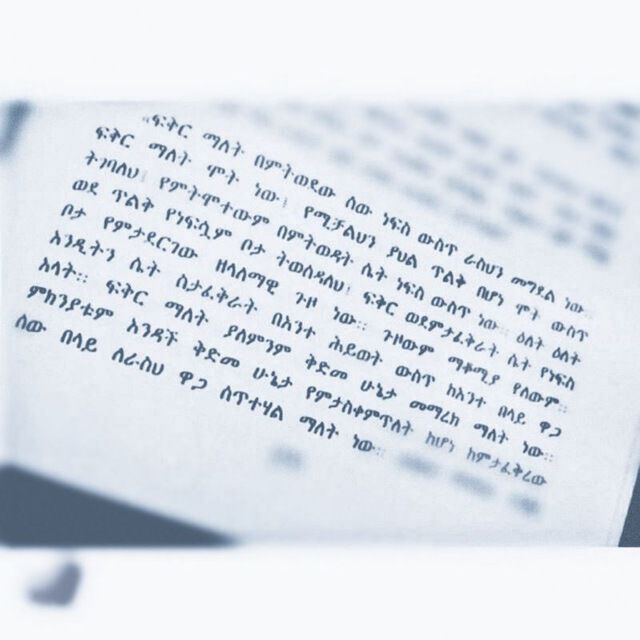 «ፍቅር ማለት በምትወደው ሰው ነፍስ ውስጥ ራስህን መግደል ነው።
ፍቅር ማለት ሞት ነው፤ የሚቻልህን ያህል ጥልቅ በሆነ ሞት ውስጥ
ትገባለህ፤ የምትሞተውም በምትወዳት ሴት ነፍስ ውስጥ ነው። ዕለት ዕለት
ወደ ጥልቅ የነፍሷም ቦታ ትወስዳለህ፤ ፍቅር ወደምታፈቅራት ሴት የነፍስ
ቦታ የምታደርገው ዘላለማዊ ጉዞ ነው። ጉዞውም ማቆሚያ የለውም።
አንዲትን ሴት ስታፈቅራት በአንተ ሕይወት ውስጥ ከአንተ በላይ ዋጋ
አላት። ፍቅር ማለት ያለምንም ቅድመ ሁኔታ መማረክ ማለት ነው።
ምክንያቱም አንዳች ቅድመ ሁኔታ የምታስቀምጥለት ከሆነ ከምታፈቅረው
ሰው በላይ ለራስህ ዋጋ ሰጥተሃል ማለት ነው።